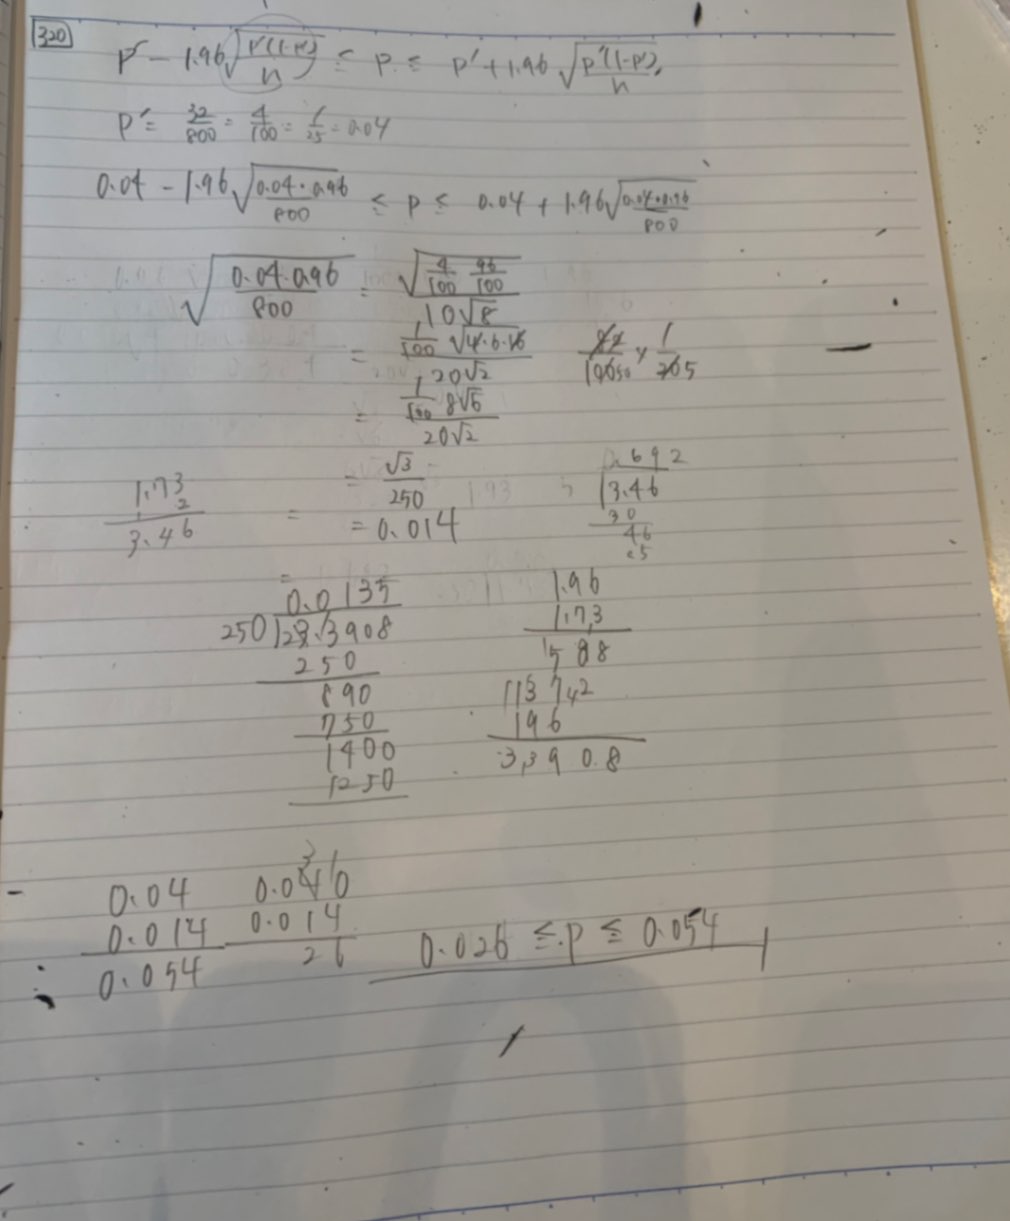 320
p' - 1.96√(p'(1-p')/n) ≤ p ≤ p' + 1.96√(p'(1-p')/n)
p' = 32/800 = 4/100 = 1/25 = 0.04
0.04 - 1.96√(0.04・0.96/800) ≤ p ≤ 0.04 + 1.96√(0.04・0.96/800)
√(0.04・0.96/800) = √(4/100 96/100)/10√8
= 1/100 √(4・6・16)/20√2
= 1/100 8√6/20√2
= √3/250
= 0.014
1.73
2
3.46
0.692
5 3.46
30
46
45
0.0135
250 3.3908
250
890
750
1400
1250
1.96
1.73
588
1372
196
3.3908
0.04
0.014
0.054
0.040
0.014
26
0.026 ≤ p ≤ 0.054